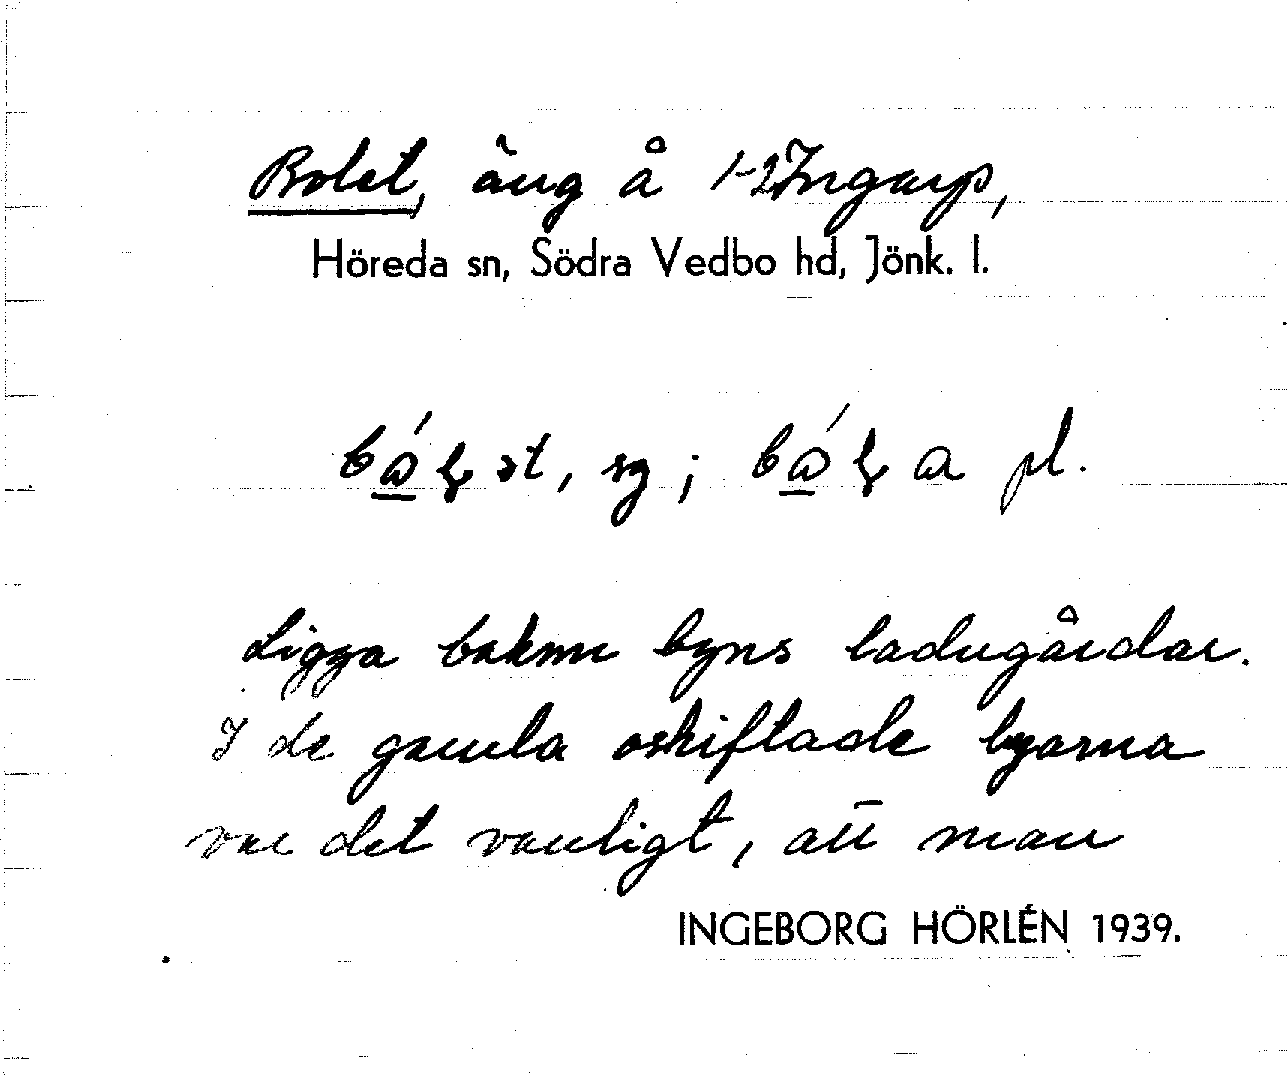 Bolet, äng å 1-2 Ingarp,
Höreda sn, Södra Vedbo hd, Jönk. l.
bó̲ɭət, sg; bó̲ɭa pl.
Ligga bakom byns ladugårdar.
I de gamla oskiftade byarna
var det vanligt, att man
INGEBORG HÖRLÉN 1939.